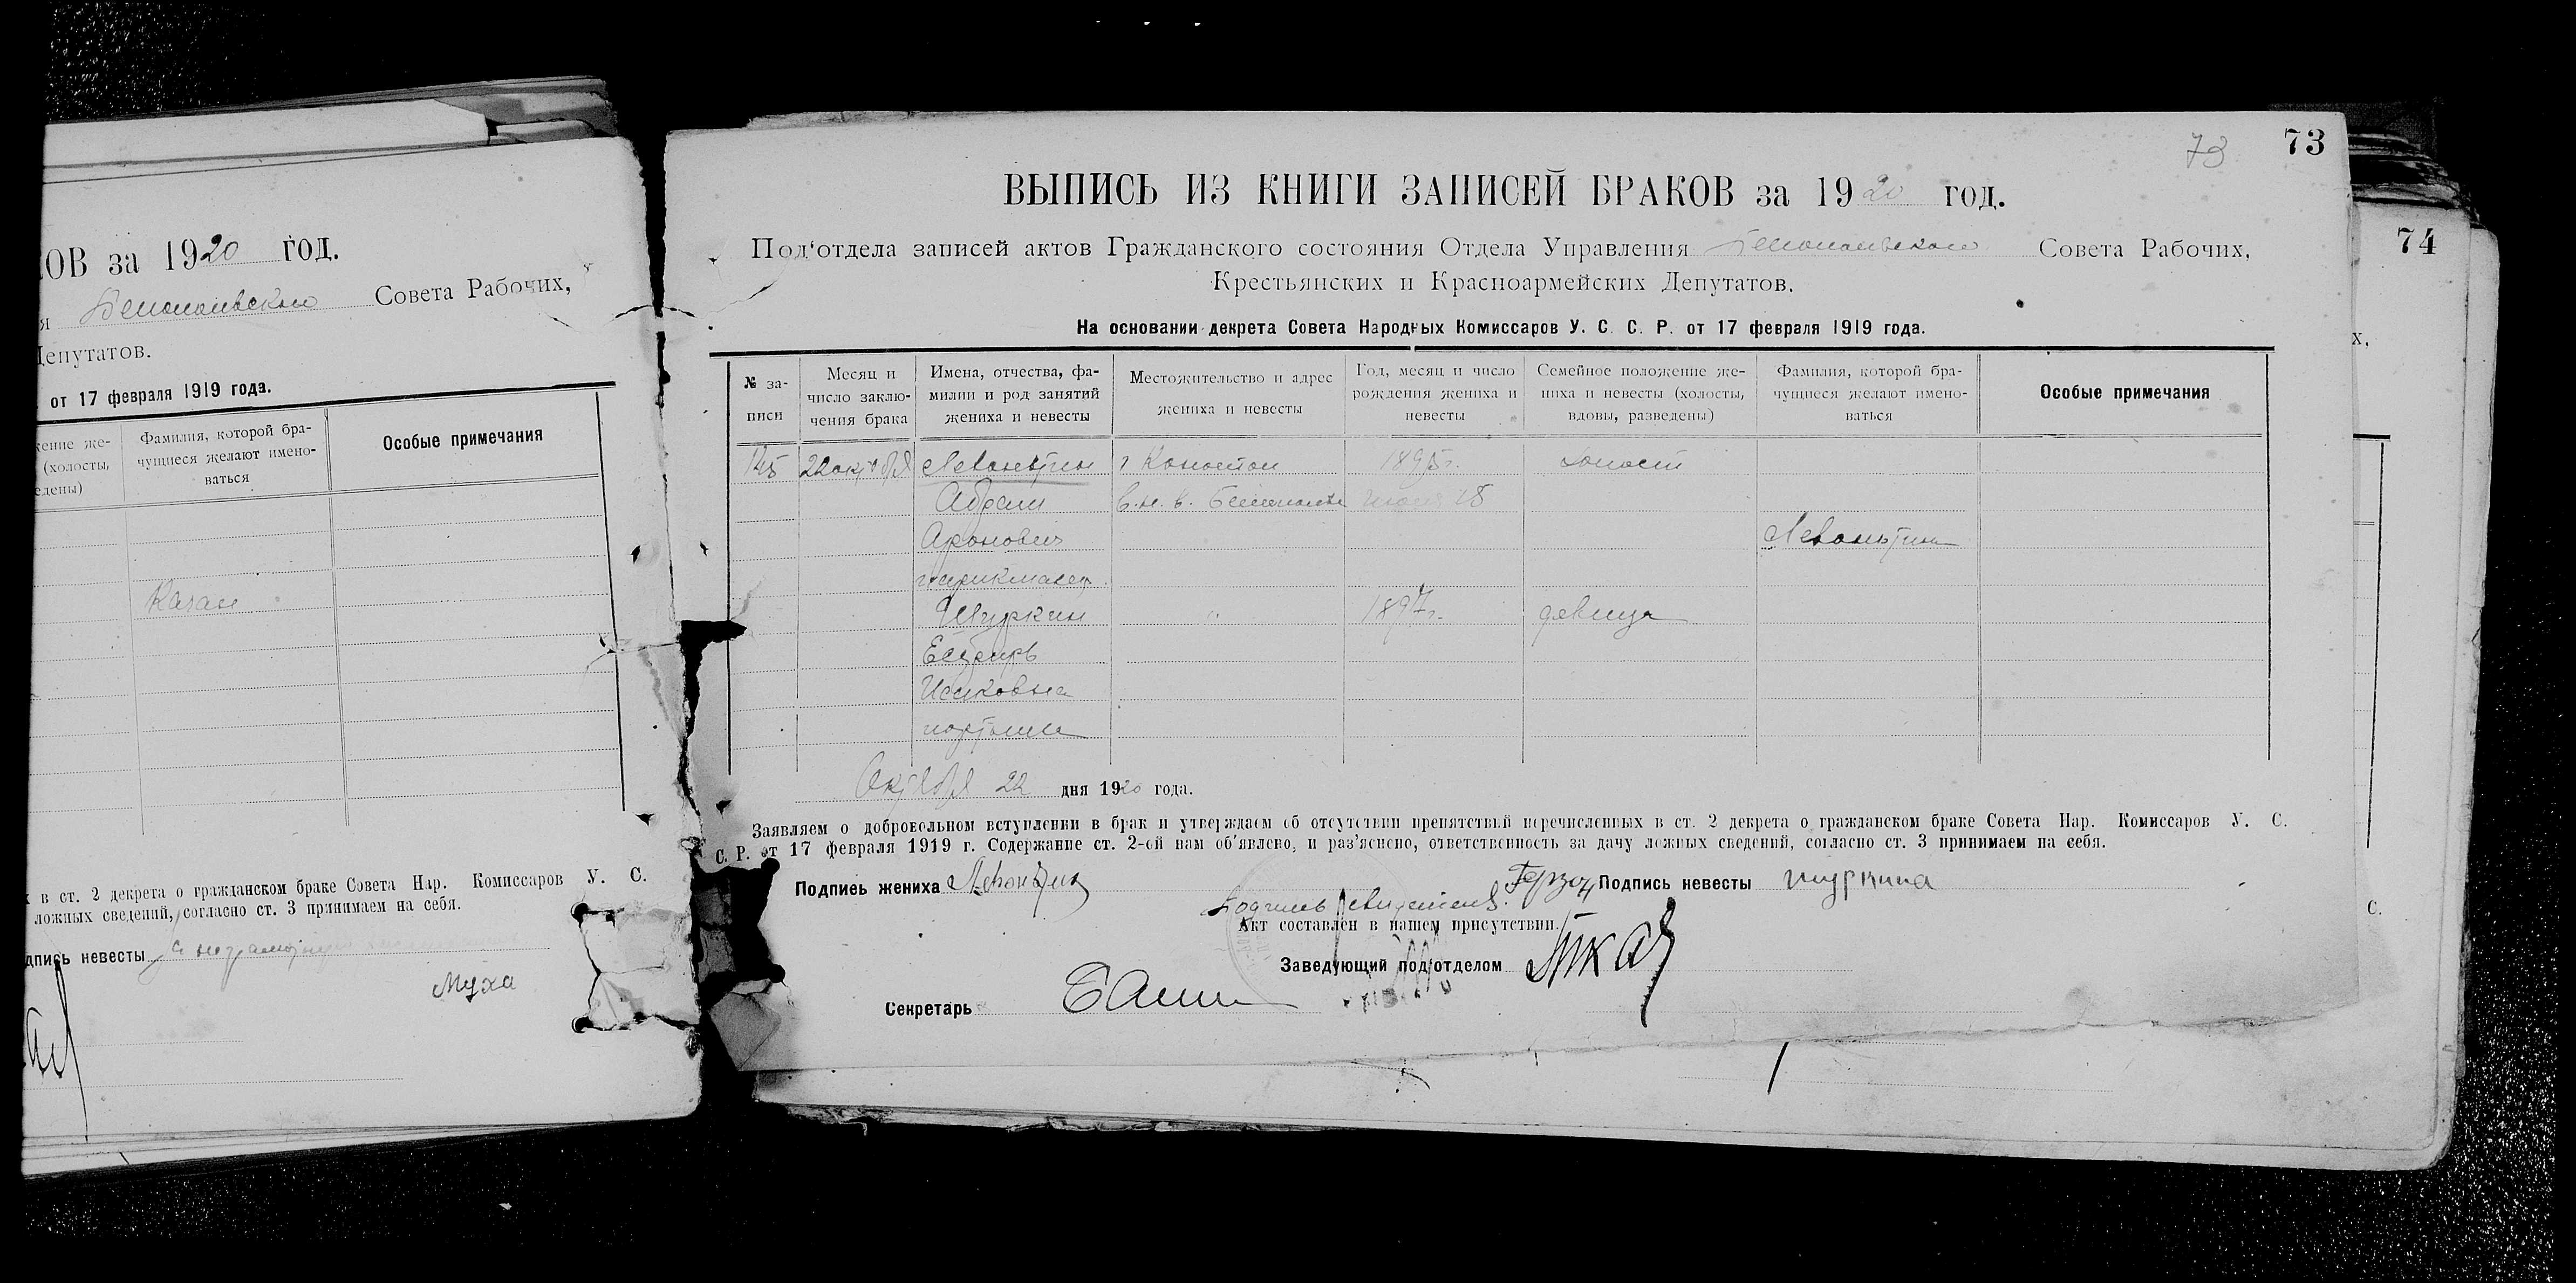 ОВ за 1920 год.
Совета Рабочих,
Депутатов.
от 17 февраля 1919 года.
жение же-
(холосты,
едены)
Фамилия, которой бра-
чущиеся желают имено-
ваться
Особые примечания
Казан
в ст. 2 декрета о гражданском браке Совета Нар. Комиссаров У. С.
ложных сведений, согласно ст. 3 принимаем на себя.
дпись невесты
Муха
73
73
ВЫПИСЬ ИЗ КНИГИ ЗАПИСЕЙ БРАКОВ за 1920 год.
Под‘отдела записей актов Гражданского состояния Отдела Управления Совета Рабочих,
Крестьянских и Красноармейских Депутатов.
На основании декрета Совета Народных Комиссаров У. С. С. Р. от 17 февраля 1919 года.
№ за-
писи
Месяц и
число заклю-
чения брака
Имена, отчества, фа-
милии и род занятий
жениха и невесты
Местожительство и адрес
жениха и невесты
Год, месяц и число
рождения жениха и
невесты
Семейное положение же-
ниха и невесты (холосты,
вдовы, разведены)
Фамилия, которой бра-
чущиеся желают имено-
ваться
Особые примечания
145 22 октября Левонтин г Конотоп 1895г. холост
Абрам
Аронович Левонтин
парикмахер
Шуркин " 1897г. девица
Есфирь
Исаковна
портниха
Октября 22 дня 1920 года.
Заявляем о добровольном вступлении в брак и утверждаем об отсутствии препятствий перечисленных в ст. 2 декрета о гражданском браке Совета Нар. Комиссаров У. С.
С. Р. от 17 февраля 1919 г. Содержание ст. 2-ой нам об'явлено, и раз'яснено, ответственность за дачу ложных сведений, согласно ст. 3 принимаем на себя.
Подпись жениха Левонтин Подпись невесты шуркина
Акт составлен в нашем присутствии.
Заведующий под‘отделом
Секретарь
74
х,
С.